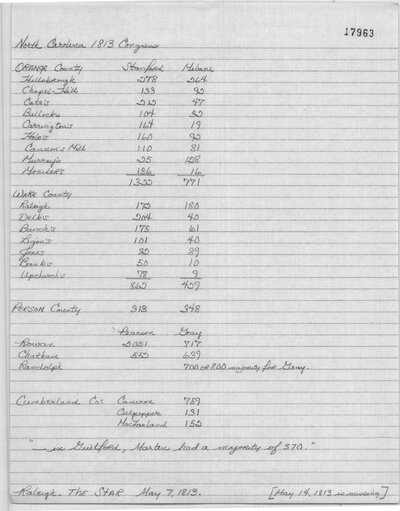 17963
North Carolina 1813 Congress
ORANGE County Stanford Mebane
Hillsborough 278 264
Chapel-Hill 133 92
Cate's 212 47
Bullock's 104 32
Carrington's 164 19
160 92
Cannon's Mill 110 81
Murray's 25 128
136 16
1322 771
WAKE County
Raleigh 172 180
204 40
Bunch's 175 61
Ligon's 101 40
82 89
50 10
Upchurch's 78 9
862 429
PERSON County 313 348
Pearson Gray
Rowan 2021 717
Chatham 552 639
Randolph 700 or 800 majority for Gray.
Cumberland Co: Cameron 759
Culpepper 131
MacFarland 152
"— in Guilford, Martin had a majority of 370."
Raleigh. THE STAR May 7, 1813. [May 14, 1813 is missing]